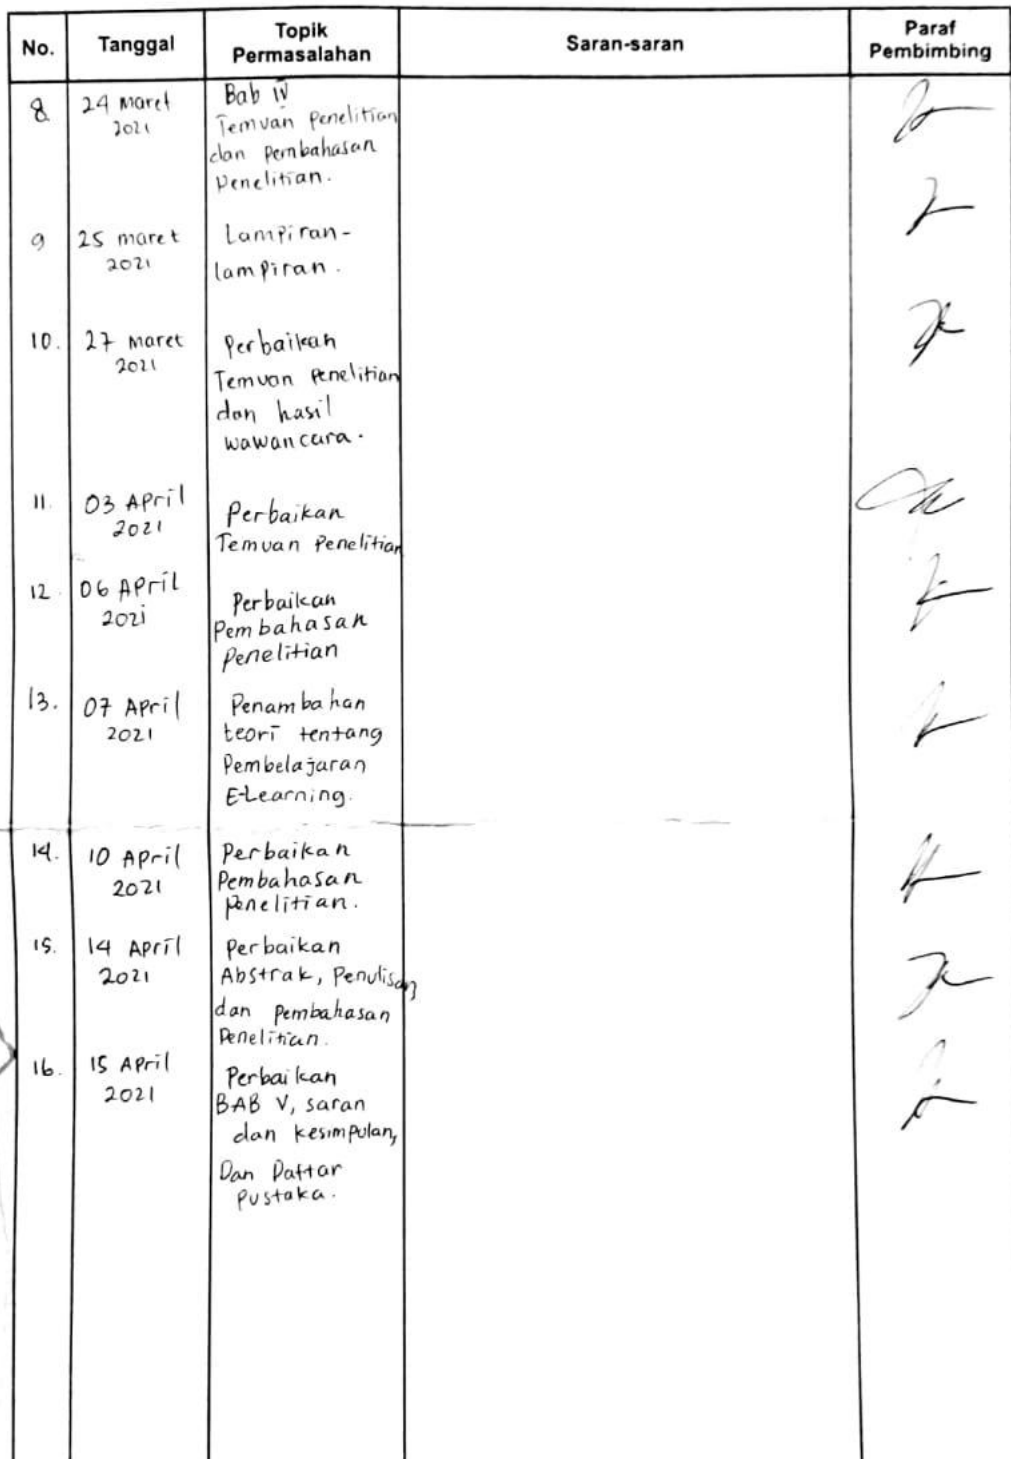 No. Tanggal Topik Permasalahan Saran-saran Paraf Pembimbing
8 24 Maret 2021 Bab IV
Temuan Penelitian
dan Pembahasan
Penelitian.
9 25 maret 2021 Lampiran-
lampiran.
10. 27 maret 2021 Perbaikan
Temuan Penelitian
dan hasil
wawancara.
11. 03 April 2021 Perbaikan
Temuan Penelitian
12. 06 April 2021 Perbaikan
Pembahasan
Penelitian
13. 07 April 2021 Penambahan
teori tentang
Pembelajaran
E-Learning.
14. 10 April 2021 Perbaikan
Pembahasan
Penelitian.
15. 14 April 2021 Perbaikan
Abstrak, Penulisan
dan Pembahasan
Penelitian.
16. 15 April 2021 Perbaikan
BAB V, saran
dan kesimpulan,
Dan Daftar
Pustaka.